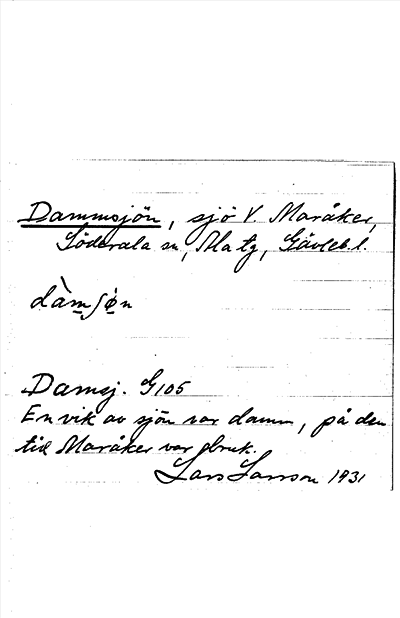 Dammsjön, sjö V. Maråker,
Söderala sn, Ala tg, Gävleb l.
dàmʃø̀n
Damsj. G105
En vik av sjön var damm, på den
tid Maråker var bruk.
Lars Larsson 1931